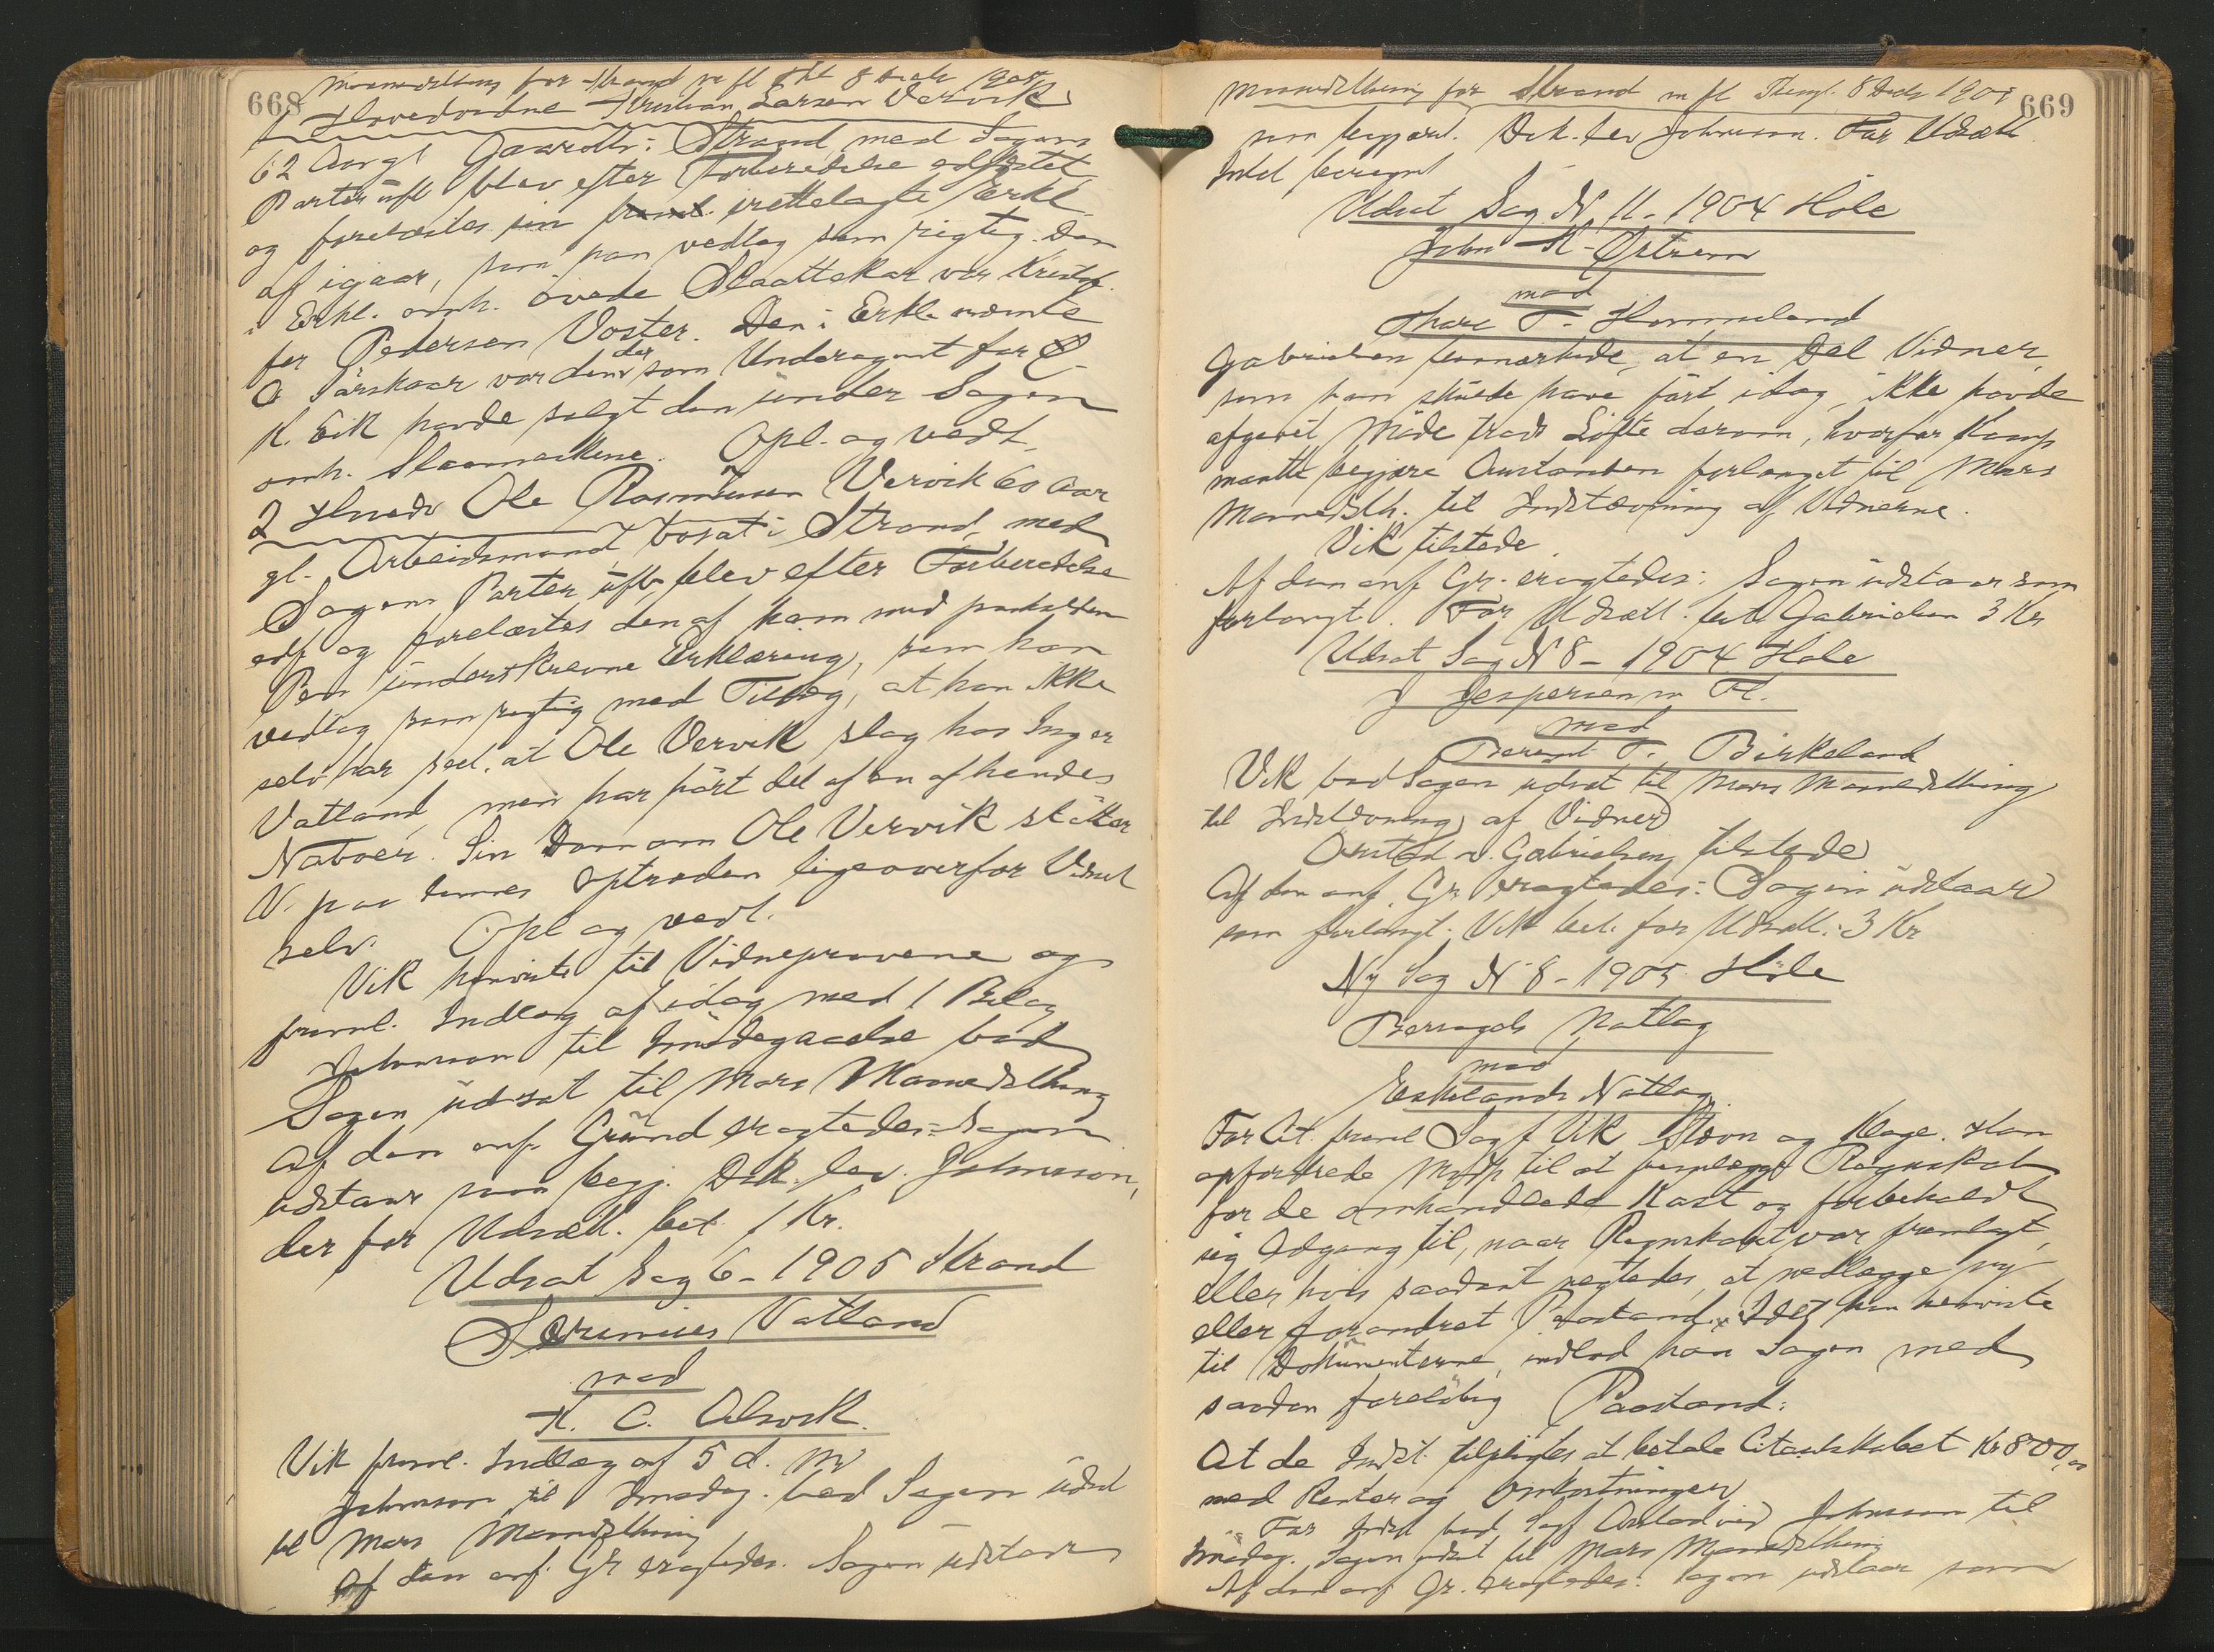 668
Maanedsthing for Strand m fl
1 Hovedvidne Kristian Larsen Vervik
62 Aar gl Gaardbr: Strand med Sagens
Parter uft blev efter Forberedelse edfæstet
og forelæstes sin freml. irettelagte Erkl.
af igaar, som han vedtog som rigtig. Den
i Erkl. omh. øvede Slaattekar var Kristof-
fer Pedersen Voster. Den i Erkl. nævnte
O Tärskaar var den der som Underagent for
K. Eik havde solgt den under Sagen
omh. Slaamaskine. Opl. og vedt
2 Hvidn Ole Rasmussen Vervik 60 Aar
gl. Arbeidsmand, bosat i Strand, med
Sagens Parter uft, blev efter Forberedelse
edf og forelæstes den af ham med paaholden
Pen underskrevne Erklæring, som han
vedtog som rigtig med Tillæg, at han ikke
selv har seet, at Ole Vervik slog hos Inger
Vatland, men har hört det af en af hendes
Naboer. Sin Dom om Ole Vervik støtter
V. paa dennes Optræden ligeoverfor Vidnet
selv. Opl og vedt.
Vik henviste til Vidneprovene og
freml. Indlæg af idag med 1 Bilag
Johnson til Imødegaaelse bad
Sagen udsat til Mars Maanedsthing
Af den anf. Grund eragtedes: Sagen
udstaar som begj. Dek. lev. Johnson,
der for Udsætt. bet 1 Kr.
Udsat Sag 6 - 1905 Strand
Serinius Vatland
mod
K. C. Alsvik.
Vik freml. Indlæg af 5 d. M
Johnson til Imødeg. bad Sagen udsat
til Mars Maanedsthing
Af den anf. Gr eragtedes. Sagen udstaar
Maanedsthing for Strand m fl Thingl. 8 Decb 1905
669
som begjært. Dek. lev Johnson. For Udsætt.
Intet beregnet
Udsat Sag N. 11 - 1904 Høle
John K. Østrem
mod
Thore T. Hommeland
Gabrielsen bemærkede, at en Del Vidner,
som han skulde have ført idag, ikke havde
afgivet Møde trods Løfte derom, hvorfor Komp
maatte begjære Anstanden forlænget til Mars
Maanedsth. til Indstævning af Vidnerne.
Vik tilstede.
Af den anf Gr. eragtedes: Sagen udstaar som
forlangt. For Udsætt. bet. Gabrielsen 3 Kr
Udsat Sag N 8 - 1904 Høle
J Jespersen m Fl.
mod
Berent T. Birkeland
Vik bad Sagen udsat til Mars Maanedsthing
til Indstævning af Vidner
Omtad v. Gabrielsen tilstede
Af den anf. Gr eragtedes: Sagen udstaar
som forlangt. Vik bet. for Udsætt. 3 Kr
Ny Sag N 8 - 1905 Høle
Bersagels Notlag
mod
Eskelands Notlag
For Cit. freml Sagf Vik Stævn og Klage. Han
opfordrede Modp til at fremlægge Regnskab
for de omhandlede Kast og forbeholdt
sig Adgang til, naar Regnskabet var fremlagt,
eller hvis saadant negtedes, at nedlægge ny
eller forandret Paastand. Idet han henviste
til Dokumenterne, indlod han Sagen med
saadan foreløbig Paastand:
At de Indst. tilpligtes at betale Citantskabet Kr 800,00
med Renter og Omkostninger
For Indst bad Sagf Omtad ved Johnson til
Imødeg. Sagen udsat til Mars Maanedsthing
Af den anf Gr. eragtedes: Sagen udstaar som